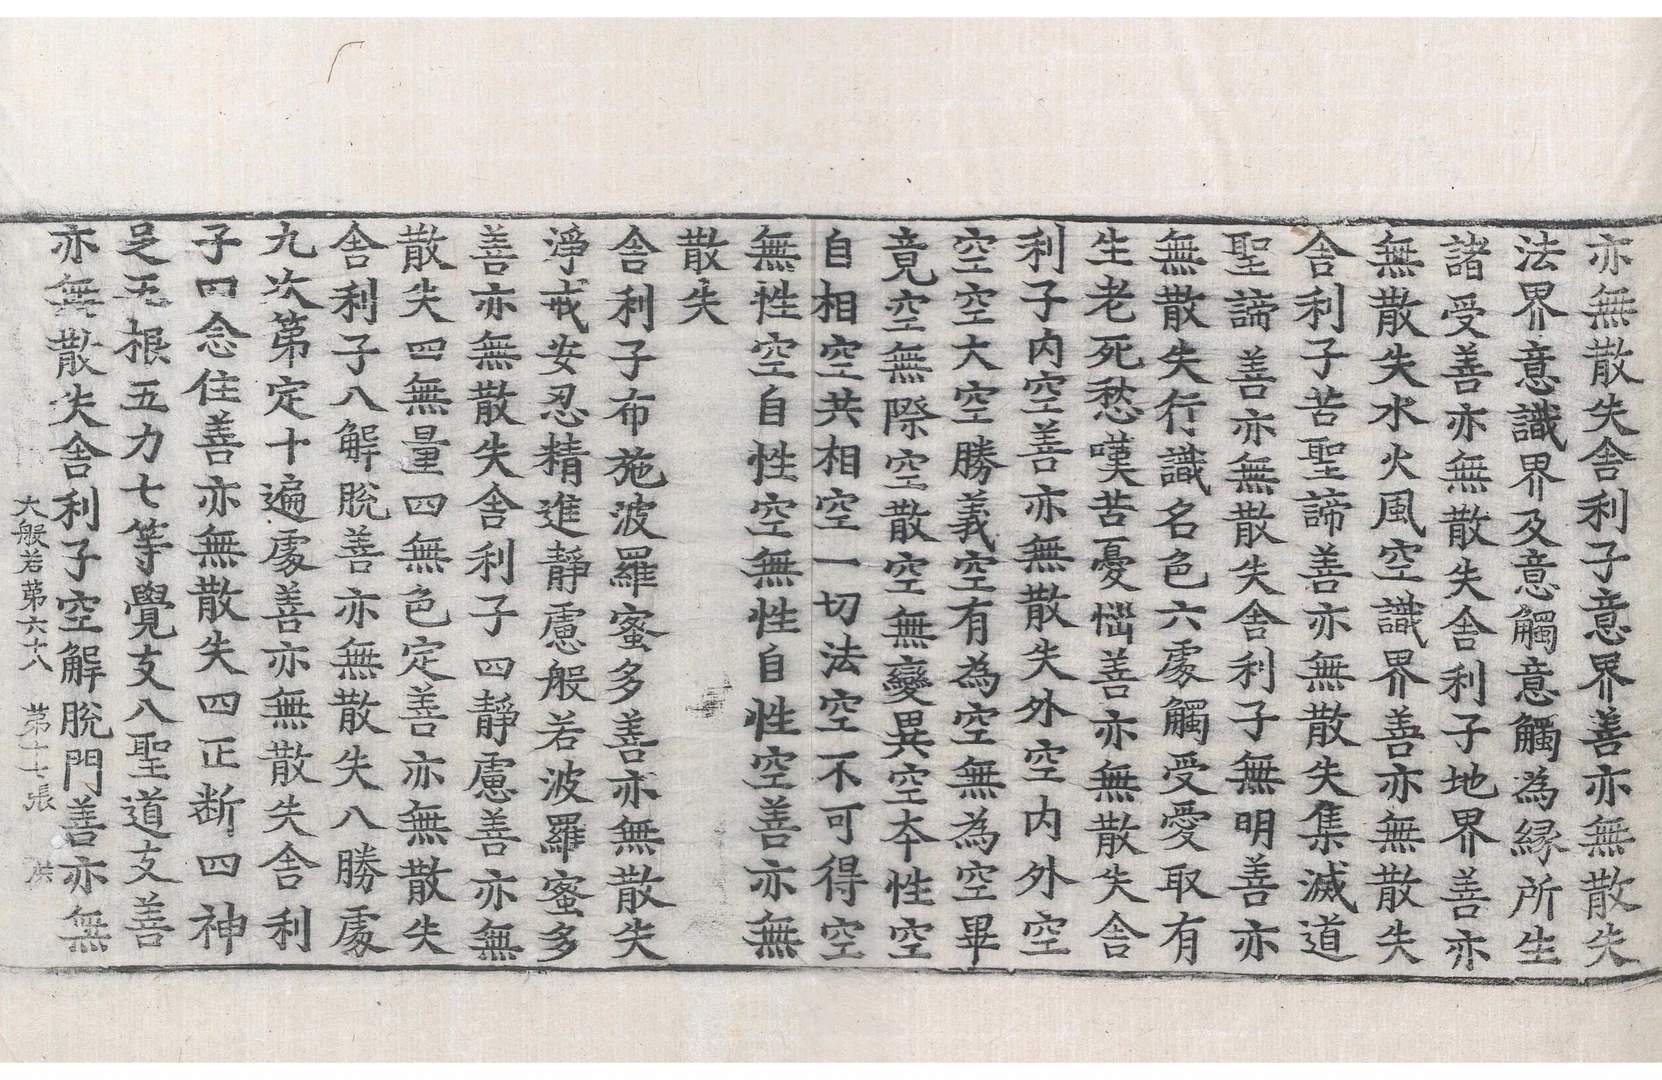 亦無散失舍利子意界善亦無散失
法界意識界及意觸意觸為緣所生
諸受善亦無散失舍利子地界善亦
無散失水火風空識界善亦無散失
舍利子苦聖諦善亦無散失集滅道
聖諦善亦無散失舍利子無明善亦
無散失行識名色六處觸受愛取有
生老死愁嘆苦憂惱善亦無散失舍
利子內空善亦無散失外空內外空
空空大空勝義空有為空無為空畢
竟空無際空散空無變異空本性空
自相空共相空一切法空不可得空
無性空自性空無性自性空善亦無
散失
舍利子布施波羅蜜多善亦無散失
淨戒安忍精進靜慮般若波羅蜜多
善亦無散失舍利子四靜慮善亦無
散失四無量四無色定善亦無散失
舍利子八解脫善亦無散失八勝處
九次第定十遍處善亦無散失舍利
子四念住善亦無散失四正断四神
足五根五力七等覺支八聖道支善
亦無散失舍利子空解脫門善亦無
大般若第六十八 第十七張